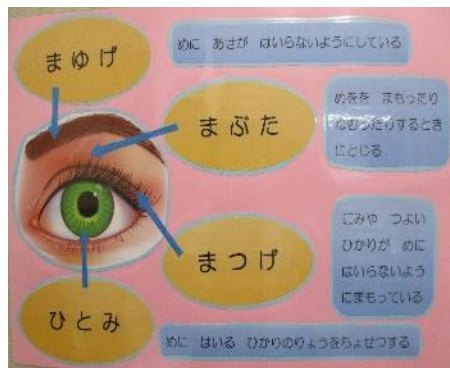 まゆげ
めに あせが はいらないようにしている
まぶた
めをを まもったり
ねむったりするとき
にとじる
まつげ
ごみや つよい
ひかりが めに
はいらないよう
にまもっている
ひとみ
めに はいる ひかりのりょうをちょせつする